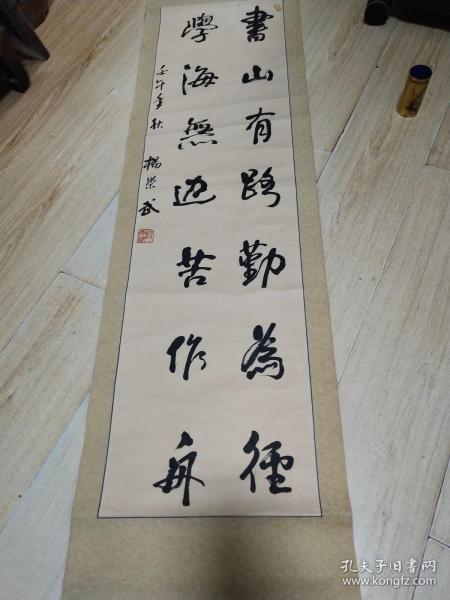 書山有路勤為徑
學海無边苦作舟
壬午年秋 楊榮武
孔夫子旧书网
www.kongfz.com